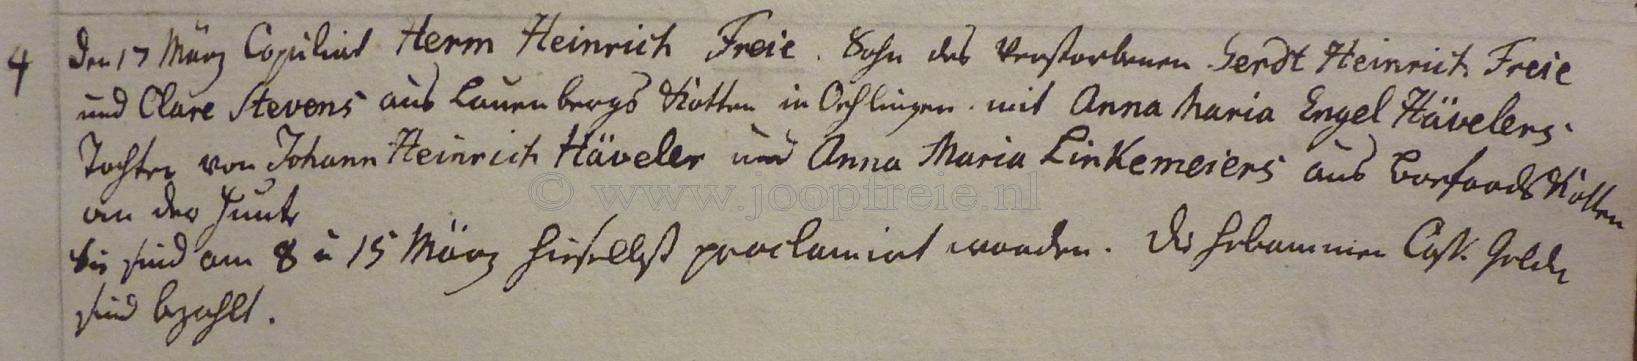 4 Den 17 März Copulirt Herm Heinrich Freie. Sohn des Verstorbenen Gerdt Heinrich Freie
und Clare Stevens aus Lauenbergs Kotten in Oehlingen. mit Anna Maria Engel Hävelers.
Tochter von Johann Heinrich Häveler und Anna Maria Linkemeiers aus Kotten
an der Hunte
© www.joopfreie.nl
Sie sind am 8 u 15 März hieselbst proclamirt worden. Die Hebammen Gelder
sind bezahlt.